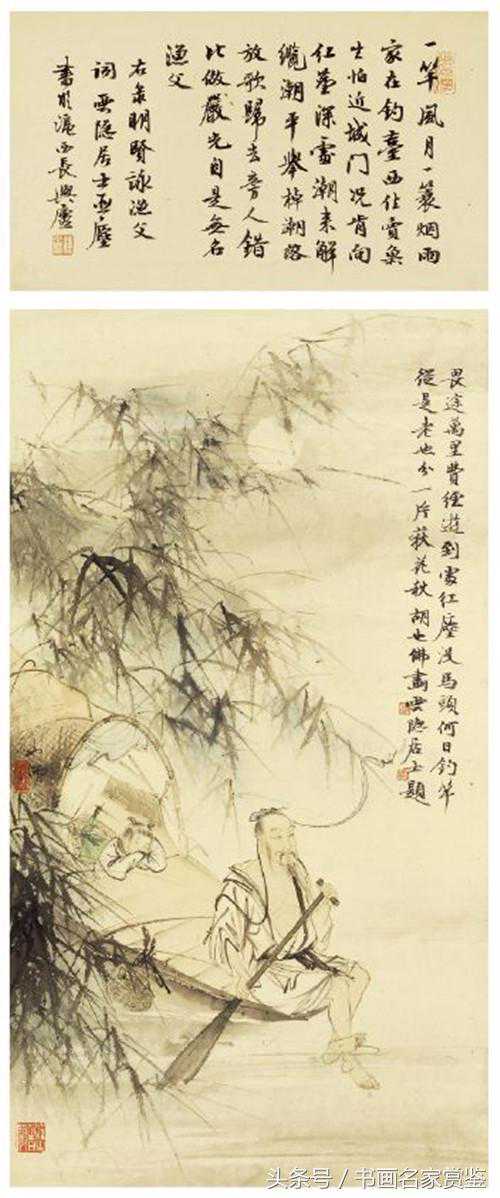 一竿風月一蓑烟雨
家在釣臺西住賣魚
生怕近城门况肯向
红塵深處潮来解
纜潮平舉棹潮落
放歌歸去旁人錯
比做嚴光自是無名
漁父
右录明賢詠漁父
词雲隐居士亚塵
書於滬西長興廬
畏途萬里費经遊到處红塵没馬頭何日釣竿
從是老也分一片荻花秋 胡也佛畫雲隐居士題
头条号 / 书画名家赏鉴